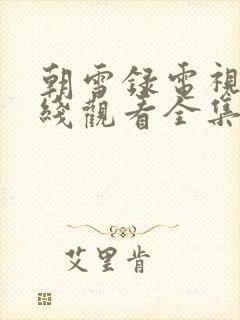 朝雪録電視
綫觀看全集
艾里肯